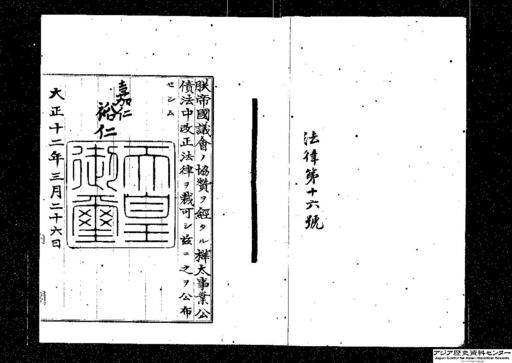 法律第十六號
朕帝國議會ノ協贊ヲ經タル樺太事業公
債法中改正法律ヲ裁可シ茲ニ之ヲ公布
セシム
嘉仁
裕仁
天皇
御璽
大正十二年三月二十六日
アジア歴史資料センター
Japan Center for Asian Historical Records